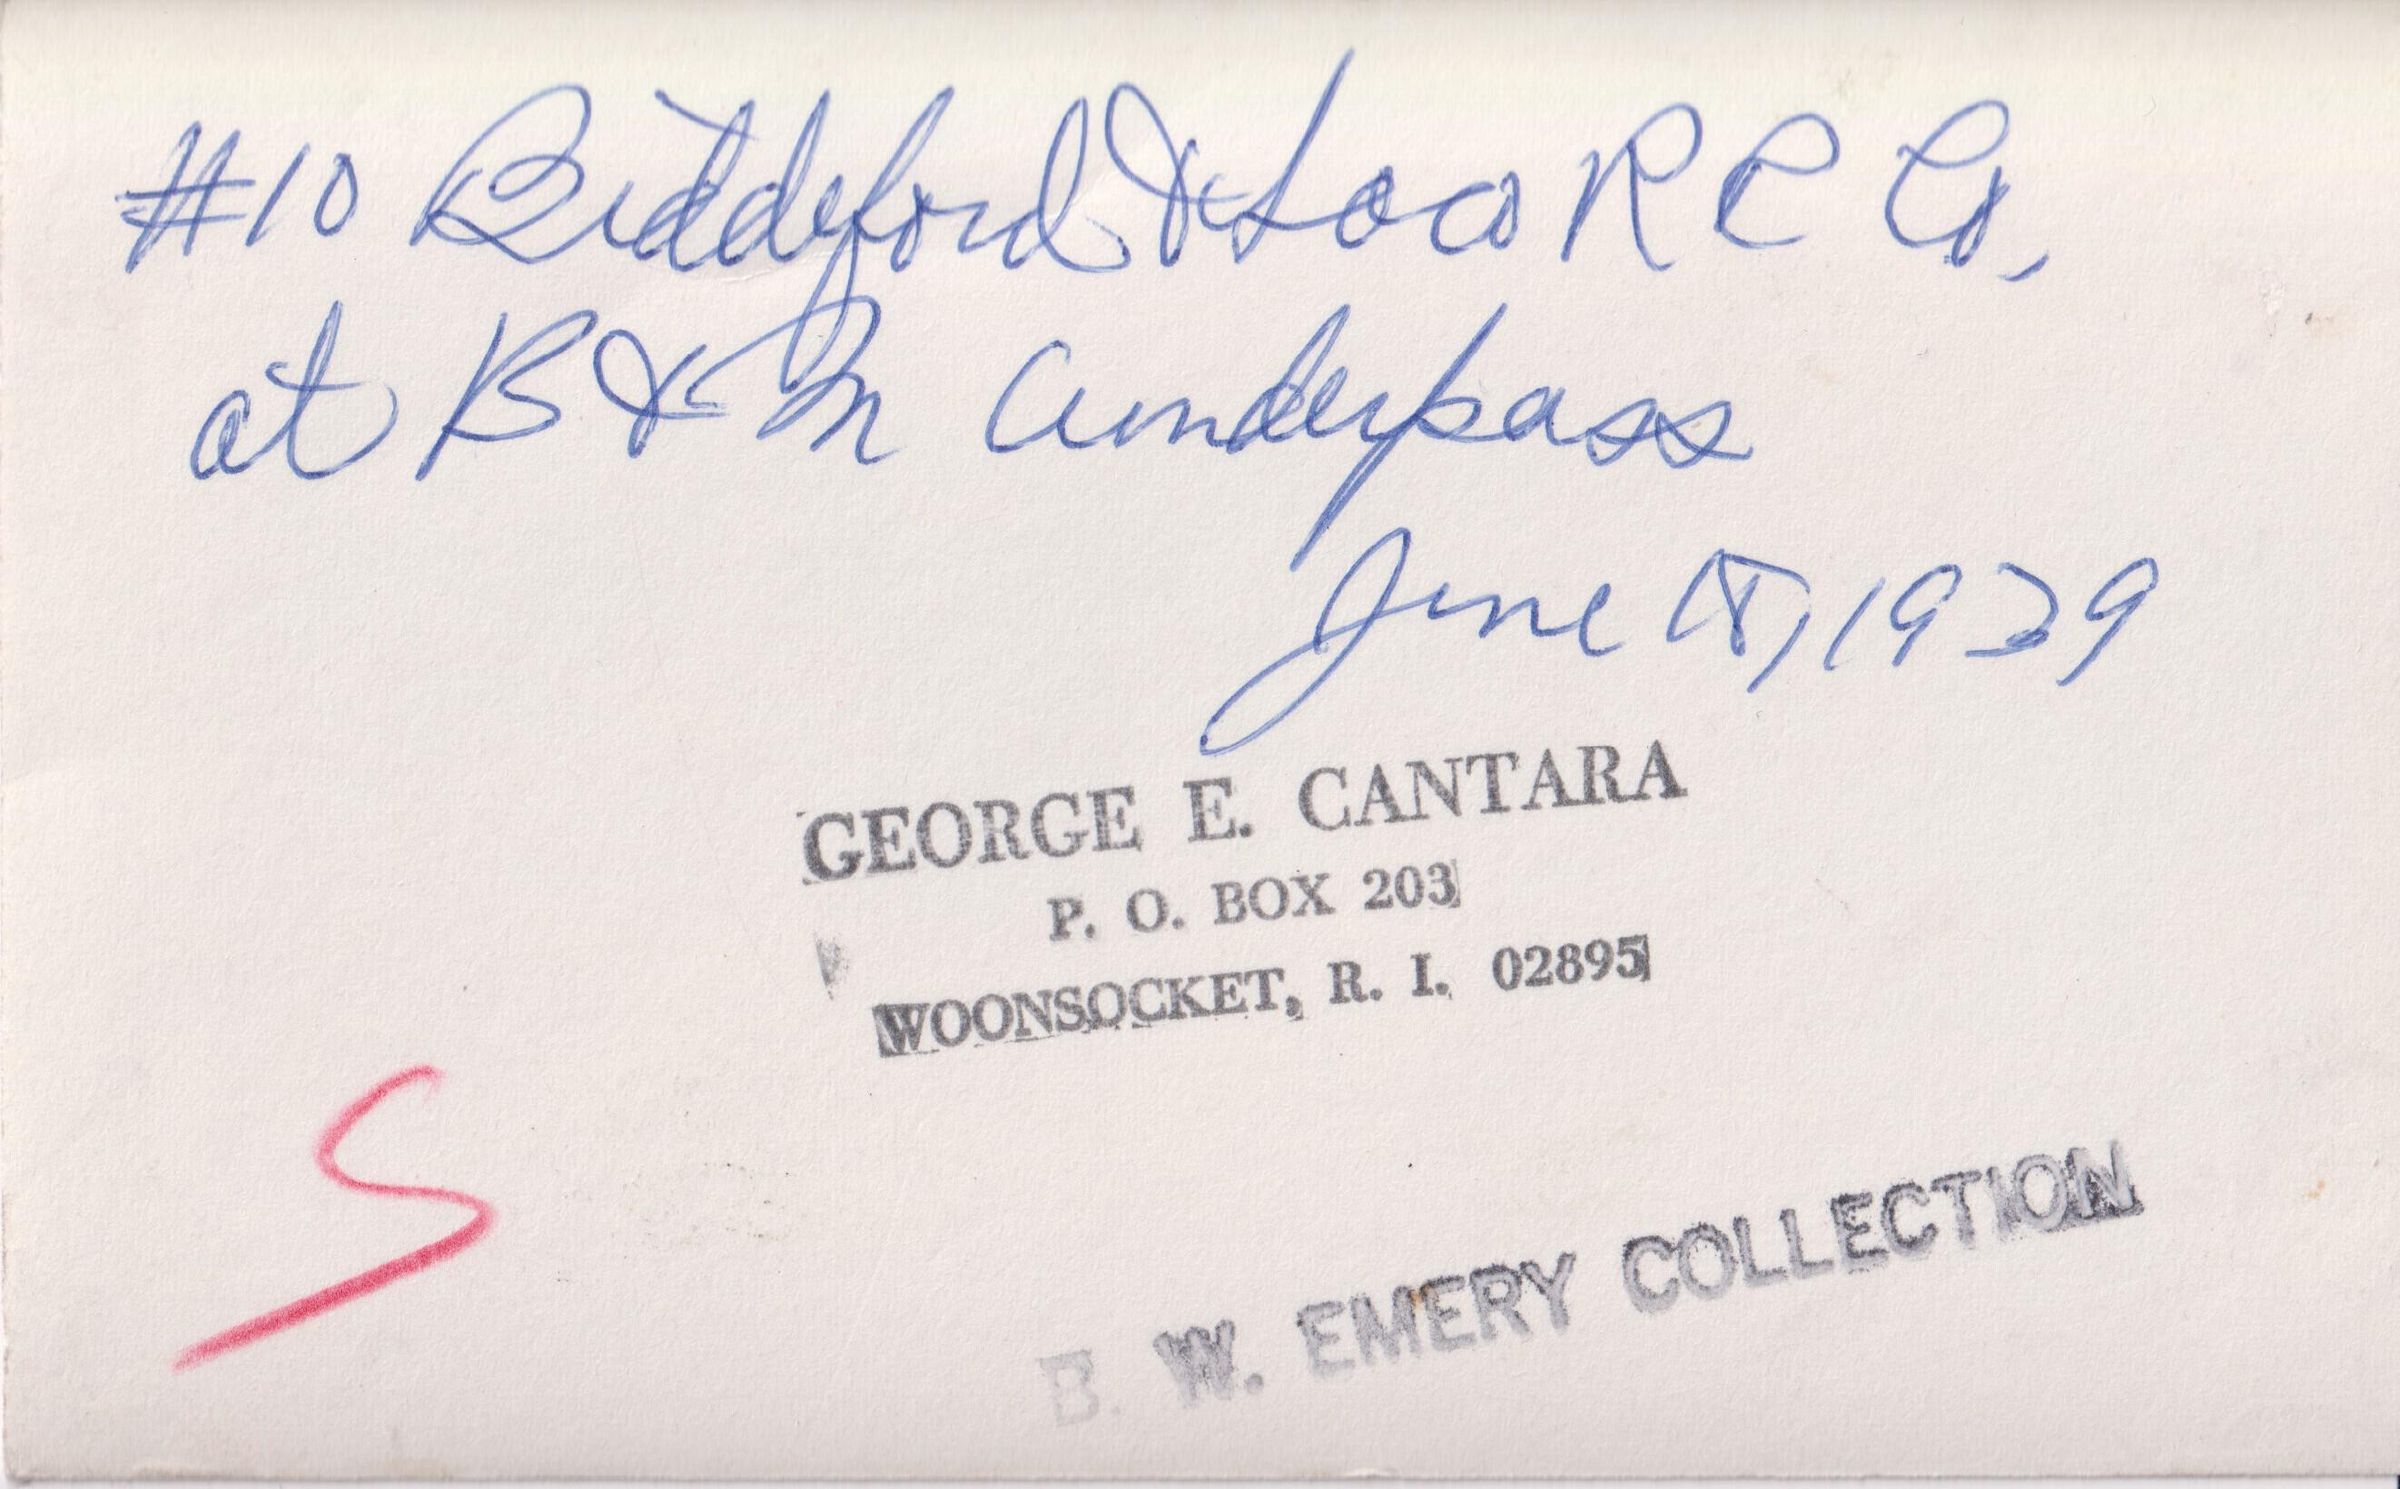 #10 Biddeford & Saco RR Co.
at B & M underpass
June , 1939
GEORGE E. CANTARA
P. O. BOX 203
WOONSOCKET, R. I. 02895
S
B. W. EMERY COLLECTION